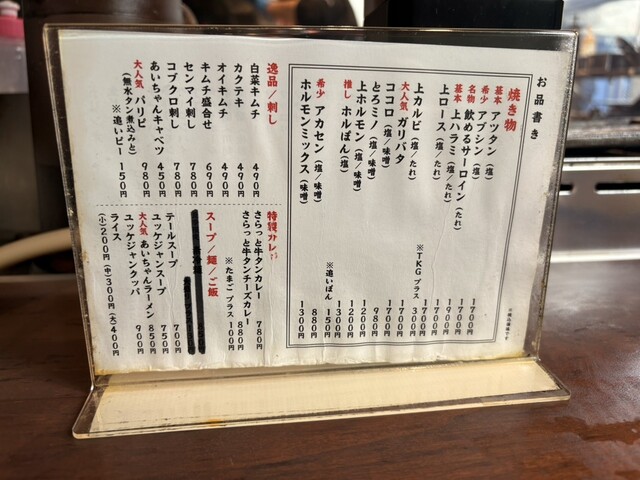 お品書き
焼き物
基本 アツタン(塩) 1700円
希少 アブシン(塩) 1700円
名物 飲めるサーロイン(たれ) 1900円
基本 上ハラミ(塩/たれ) 1700円
上ロース(塩/たれ) 1700円
※TKGプラス 300円
上カルビ(塩/たれ)
大人気 ガリバタ
ココロ(塩/味噌)
とろミノ(塩/味噌) 980円
上ホルモン(塩/味噌) 1200円
推し ホルぽん(塩) 1300円
※追いぽん 150円
希少 アカセン(塩/味噌) 880円
ホルモンミックス(塩/味噌) 1300円
逸品/刺し
白菜キムチ 490円
カクテキ 490円
オイキムチ 490円
キムチ盛合せ 690円
センマイ刺し 780円
コブクロ刺し 780円
あいちゃんキャベツ 450円
大人気 パリピ 980円
(無水タン煮込みと)
※追いピー 150円
特製カレー
さらっと牛タンカレー 780円
さらっと牛タンチーズカレー 880円
※たまごプラス 100円
スープ/麺/ご飯
テールスープ 700円
ユッケジャンスープ 750円
大人気 あいちゃんラーメン 850円
ユッケジャンクッパ 900円
ライス
(小)200円 (中)300円 (大)400円